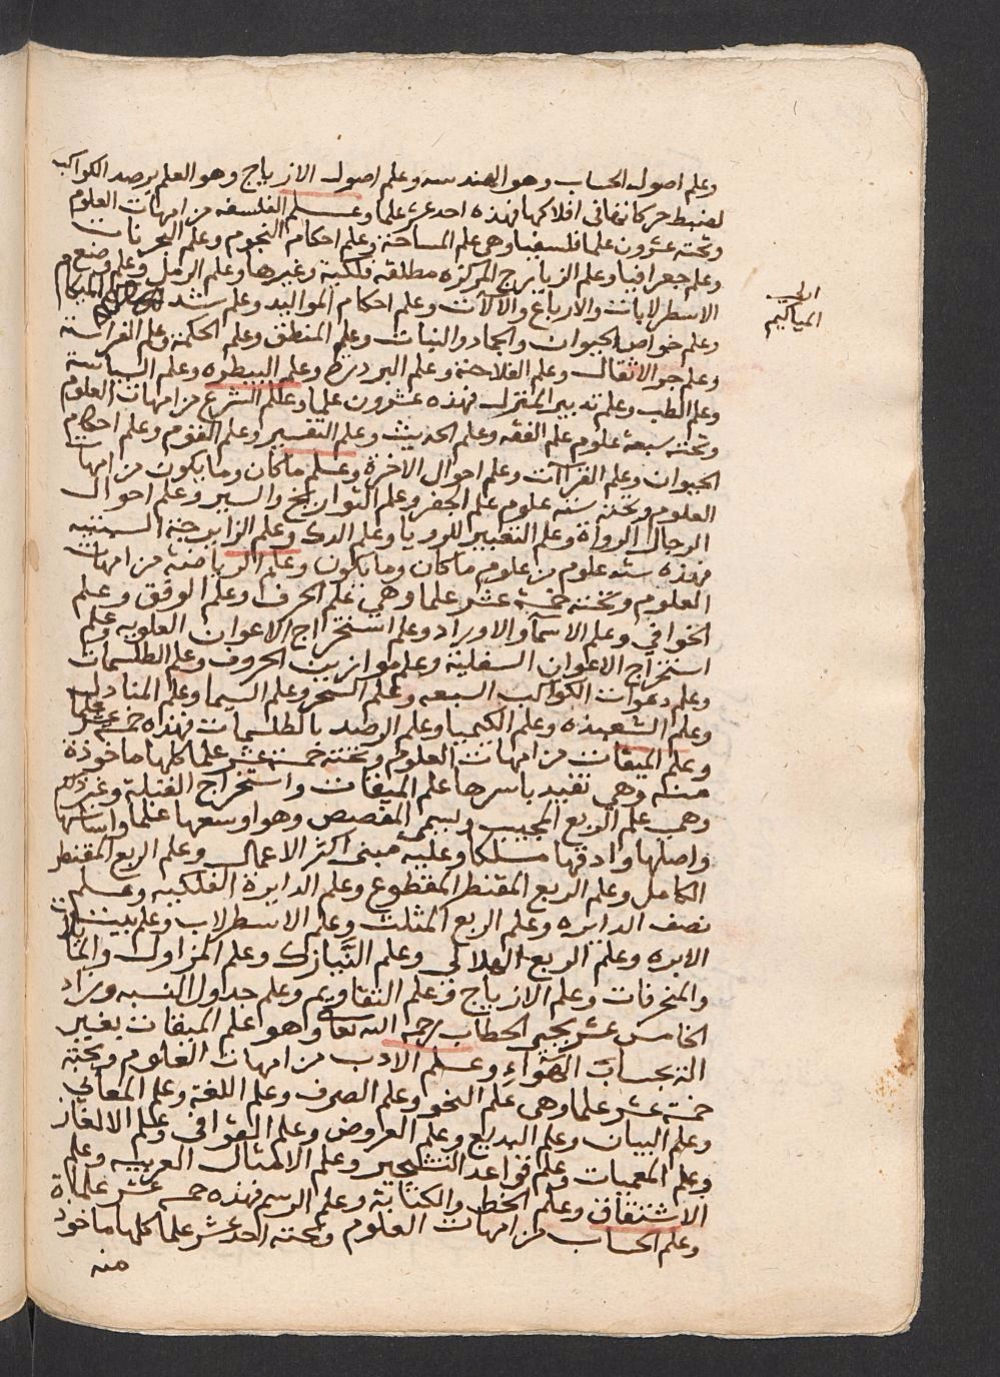 وعلم اصول الحساب وهو الهندسه وعلم اصول الازياج وهو العلم برصد الكواكب
لضبط حركاتها في افلاكها فهذه احد عشر علما وعلم الفلسفه من امهات العلوم
وتحته عشرون علما فلسفيا وهي علم المساحة وعلم احكام النجوم وعلم
وعلم جعرافيا وعلم الزيايرج المركزه مطلقه فلكية وغيرها وعلم الرمل وعلم وضع
الاسطرلابات والارباع والآلات وعلم احكام المواليد وعلم شد
الي
المياكيم
وعلم خواص الحيوان والجماد والنبات وعلم المنطق وعلم الحكمة وعلم الفراسة
وعلم جر الاثقال وعلم الفلاحة وعلم البردرة وعلم البيطره وعلم السياسة
وعلم الطب وعلم تدبير المنزل فهذه عشرون علما وعلم الشرع من امهات العلوم
وتحته سبعة علوم علم الفقه وعلم الحديث وعلم التفسير وعلم وعلم احكام
الحيوان وعلم القراآت وعلم احوال الاخرة وعلم ماكان وما يكون من امهات
العلوم وتحته سته علوم علم الجفر وعلم التواريخ والسير وعلم احوال
الرجال الرواة وعلم التعبير للرويا وعلم الدك وعلم الزايرجة السبتيه
فهذه سته علوم من علوم ماكان وما يكون وعلم الرياضة من امهات
العلوم وتحته خمسة عشر علما وهي علم الحرف وعلم الوفق وعلم
الخوافي وعلم الاسما والاوراد وعلم استخراج الاعوان العلويه وعلم
استخراج الاعوان السفلية وعلم موازين الحروف وعلم الطلسمات
وعلم دعوات الكواكب السبعه وعلم السحر وعلم السيما وعلم المنادل
وعلم الشعبذه وعلم الكيميا وعلم الرصد بالطلسمات فهذه خمسة عشر علما
وعلم الميقات من امهات العلوم وتحته خمسة عشر علما كلها ماخوذة
منه وهي تفيد باسرها علم الميقات واستخراج القبلة وغير ذلك
وهي علم الربع المجيب ويسمى المقصص وهو اوسعها علما واساسها
واصلها وادقها مسلكا وعليه مبنى اكثر الاعمال وعلم الربع المقنطر
الكامل وعلم الربع المقنطر المقطوع وعلم الدايرة الفلكيه وعلم
نصف الدايره وعلم الربع المثلث وعلم الاسطرلاب وعلم بيت
الابره وعلم الربع الهلالي وعلم النيازك وعلم المزاول والماثلات
والمنحرفات وعلم الازياج وعلم التقاويم وعلم جداول النسبه وزاد
الخامس عشر يحيى الحطاب رحمه الله تعالى وهو علم الميقات بغير
الة بحساب الهواء وعلم الادب من امهات العلوم وتحته
خمسة عشر علما وهي علم النحو وعلم الصرف وعلم اللغة وعلم المعاني
وعلم البيان وعلم البديع وعلم العروض وعلم القوافي وعلم الالغاز
وعلم المعميات وعلم قواعد التشجير وعلم الامثال العربيه وعلم
الاشتقاق وعلم الخط والكتابة وعلم الرسم فهذه خمسة عشر علما
وعلم الحساب من امهات العلوم وتحته احد عشر علما كلها ماخوذة
منه